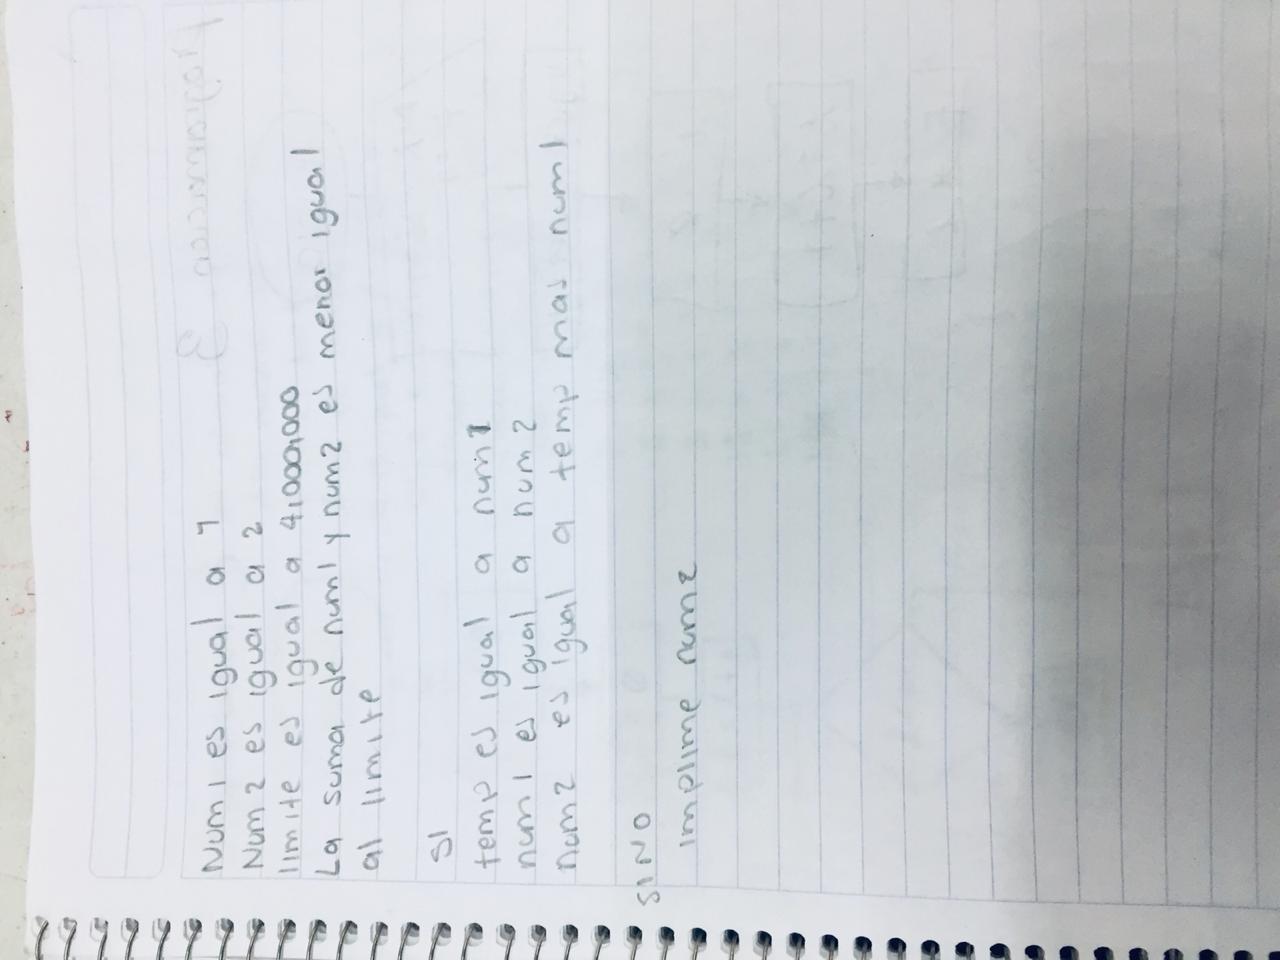 Num1 es igual a 1
Num2 es igual a 2
limite es igual a 4,000,000
La suma de num1 y num2 es menor igual
al limite
SI
temp es igual a num1
num1 es igual a num2
num2 es igual a temp mas num1
SINO
implime num2